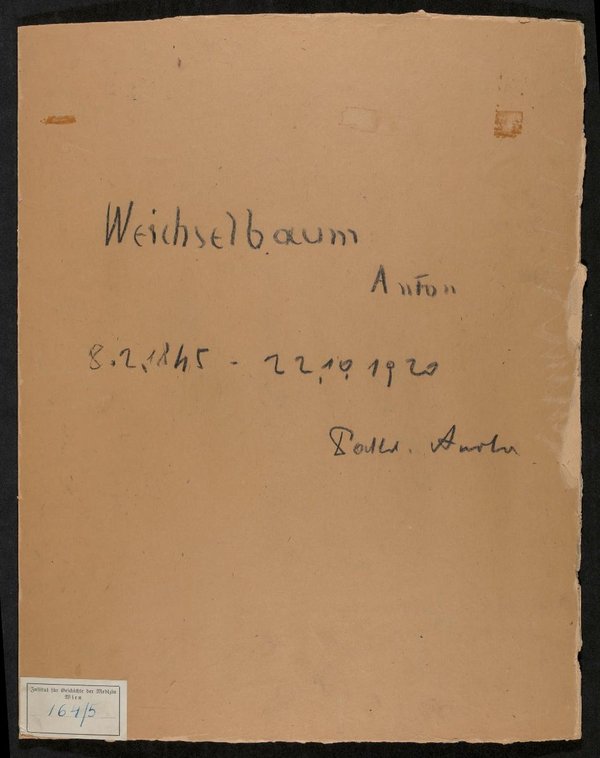 Weichselbaum
Anton
8.2.1845 - 22.10.1920
Institut für Geschichte der Medizin
Wien
164/5